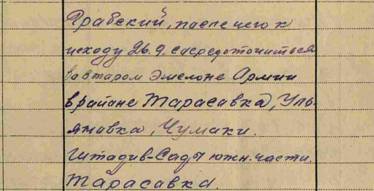 Грабский, после чего к
исходу 26.9. сосредоточиться
во втором эшелоне Армии
в районе Тарасавка, Уль-
яновка, Чумаки.
Штадив-Сады южн. части.
Тарасавка.